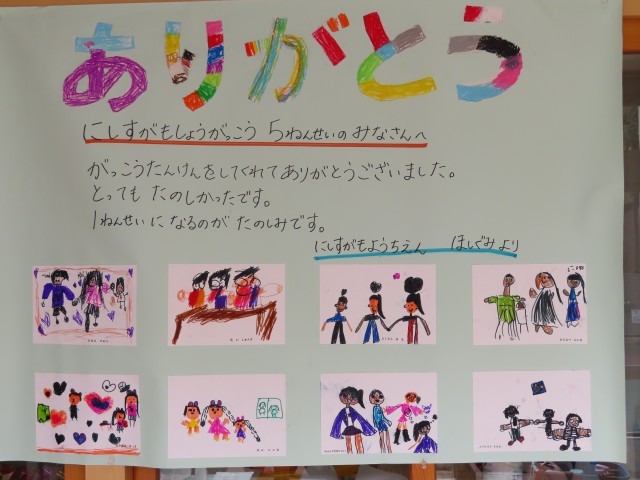 ありがとう
にしすがもしょうがっこう 5ねんせいの みなさんへ
がっこうたんけんをしてくれてありがとうございました。
とっても たのしかったです。
1ねんせいに なるのが たのしみです。
にしすがもようちえん ほしぐみより